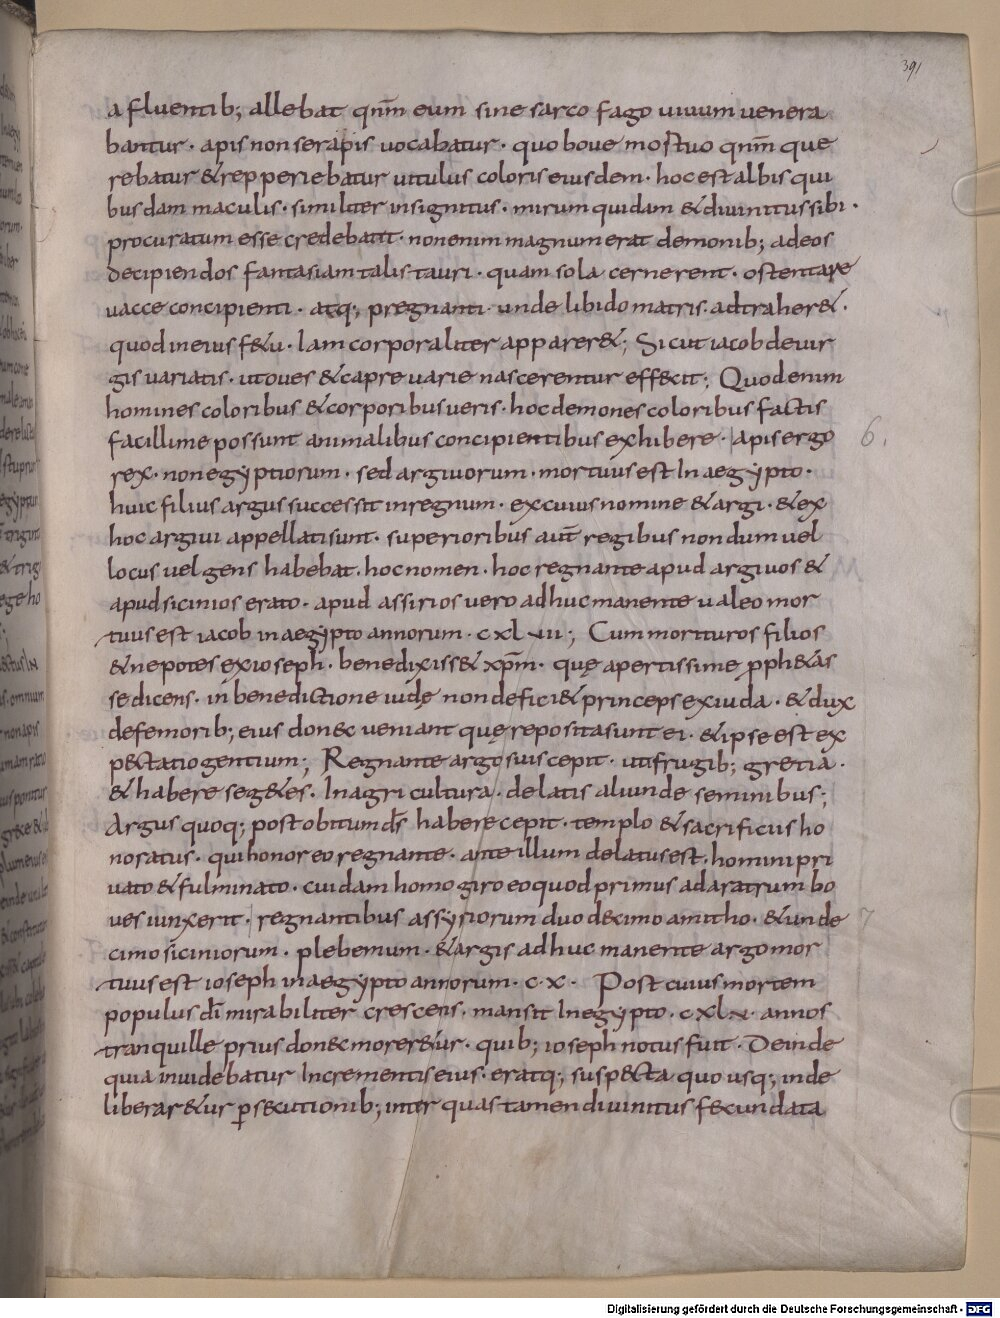 391
a fluentib; allebat qnm̄ eum sine sarco fago uiuum venera
bantur · apis non serapis uocabatur · quo boue mortuo qnm̄ que
rebatur & repperiebatur uitulus coloris eiusdem · hoc est albis qui
busdam maculis · similiter insignitus · mirum quidam & diuinitus sibi ·
procuratum esse credebant · non enim magnum erat demonib; ad eos
decipiendos fantasiam talis tauri · quam sola cernerent · ostentare
uacce concipienti · atq; pregnanti · unde libido matris · adtraher& ·
quod in eius f&u · Iam corporaliter apparer&; Sicut iacob de uir
gis uariatis · ut oues & capre uarie nascerentur effecit; Quod enim
homines coloribus & corporibus ueris · hoc demones coloribus factis
facillime possunt animalibus concipientibus exhibere · apis ergo
6.
rex · non egyptiorum · sed argiuorum · mortuus est In aegypto ·
huic filius argus successit in regnum · ex cuius nomine & argi · & ex
hoc argiui appellati sunt · superioribus aut̄ regibus nondum uel
locus uel gens habebat · hoc nomen · hoc regnante apud argiuos &
apud sicinios erato · apud assirios uero adhuc manente ualeo mor
tuus est iacob in aegypto annorum · cxlvii; Cum morituros filios
& nepotes ex ioseph · benedixiss& xp̄m · quę apertissime pph&as
se dicens · in benedictione iudę non defici& princeps ex iuda · & dux
de femorib; eius donec ueniant quę reposita sunt ei · & ipse est ex
p&tatio gentium; Regnante argo suis cepit · uti frugib; gretia ·
& habere seg&es · In agri cultura · delatis aliunde seminibus;
Argus quoq; post obitum ds̄ habere cepit · templo & sacrificiis ho
noratus · qui honor eo regnante · ante illum delatus est · homini pri
uato & fulminato · cuidam homo giro eo quod primus ad aratrum bo
ues iunxerit · regnantibus assyriorum duodecimo amitho · & unde
7
cimo siciniorum · plebemum · & argis adhuc manente argo mor
tuus est ioseph in aegypto annorum · c · x · Post cuius mortem
populus dī mirabiliter crescens · mansit In egypto · cxlv · annos
tranquille prius donec morer&ur · quib; ioseph notus fuit · Deinde
quia inuidebatur Incrementis eius · eratq; suspecta quo usq; inde
liberar&ur p̱secutionib; inter quas tamen diuinitus fecundata
Digitalisierung gefördert durch die Deutsche Forschungsgemeinschaft - DFG